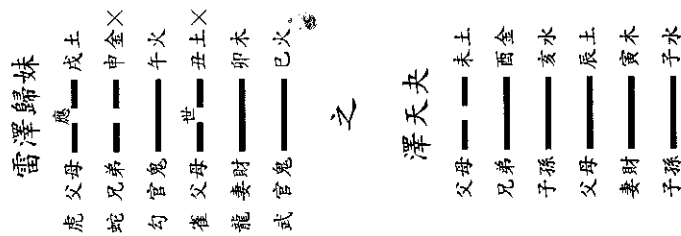 雷澤歸妹
虎父母 應 戌土
蛇兄弟 申金×
勾官鬼 午火
雀父母 世 丑土×
龍妻財 卯木
武官鬼 巳火
之
澤天夬
父母 未土
兄弟 酉金
子孫 亥水
父母 辰土
妻財 寅木
子孫 子水